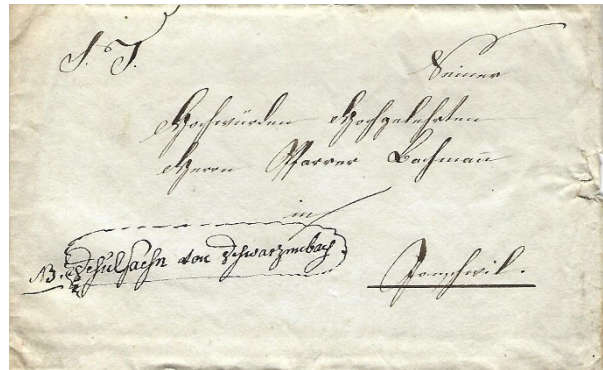 S. T.
Seiner
Hochwürden Hochgelehrten
Herrn Pfarrer Bachman̄
in
NB. Schulsachen von Schwarzenbach.
Jonschwil.